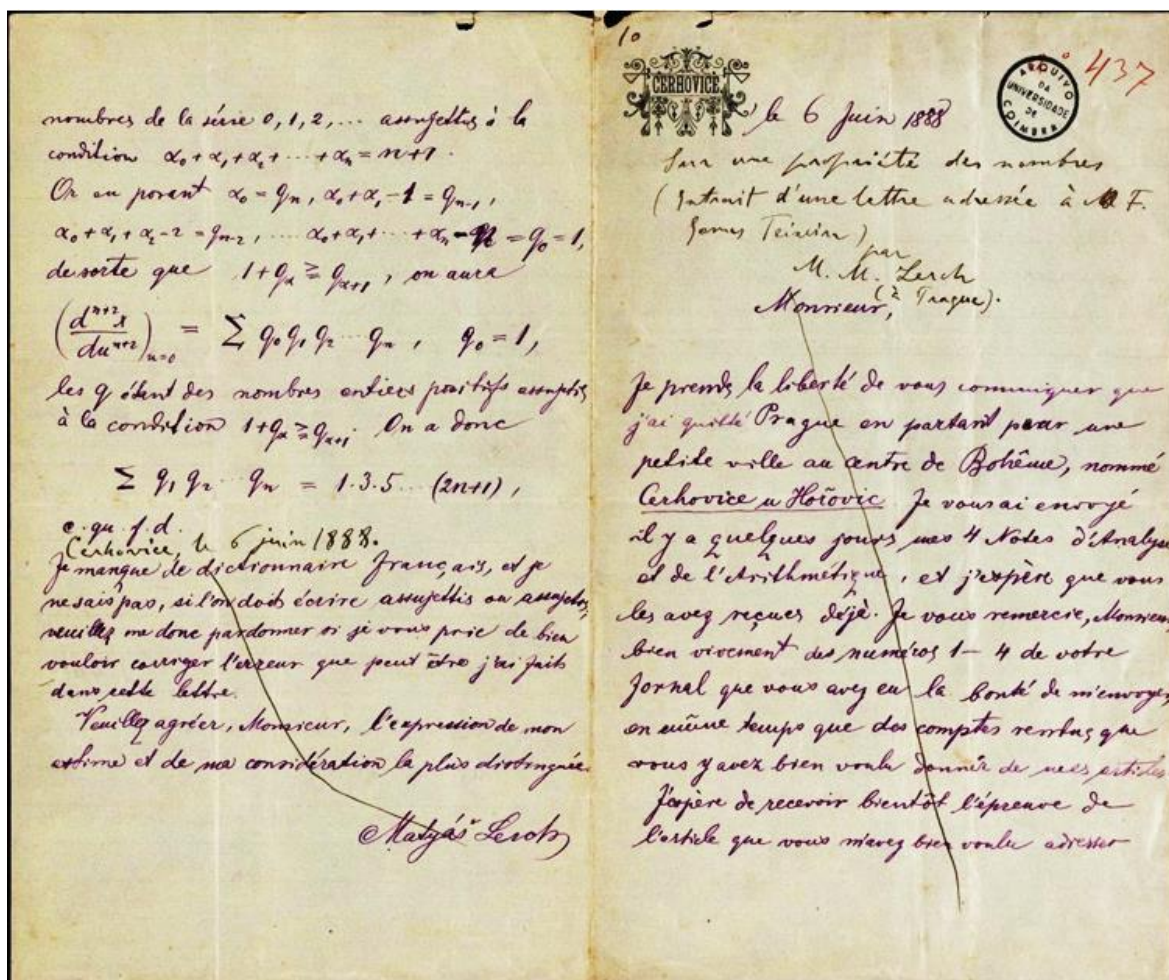 nombres de la série 0, 1, 2, ... assujettis à la
condition α₀ + α₁ + α₂ + ... + αₙ = n+1.
Or en posant α₀ = qₙ, α₀ + α₁ - 1 = qₙ₋₁,
α₀ + α₁ + α₂ - 2 = qₙ₋₂, ..... α₀ + α₁ + ... + αₙ - n = q₀ = 1,
de sorte que 1 + qₐ ≧ qₐ₊₁, on aura
(dⁿ⁺²x / duⁿ⁺²)ᵤ₌₀ = Σ q₀ q₁ q₂ ... qₙ, q₀ = 1,
les q étant des nombres entiers positifs assujettis
à la condition 1 + qₐ ≧ qₐ₊₁. On a donc
Σ q₁ q₂ ... qₙ = 1·3·5 ... (2n+1),
c. qu. f. d.
Cerhovice, le 6 juin 1888.
Je manque de dictionnaire français, et je
ne sais pas, si l'on doit écrire assujettis ou
veuillez me donc pardonner si je vous prie de bien
vouloir corriger l'erreur que peut être j'ai faite
dans cette lettre.
Veuillez agréer, Monsieur, l'expression de mon
estime et de ma considération la plus distinguée.
Matyáš Lerch
10
CERHOVICE
437
ARQUIVO DA UNIVERSIDADE DE COIMBRA
le 6 Juin 1888
Sur une propriété des nombres
(Extrait d'une lettre adressée à M F.
Gomes Teixeira)
par
M. M. Lerch
(à Prague).
Monsieur,
Je prends la liberté de vous communiquer que
j'ai quitté Prague en partant pour une
petite ville au centre de Bohême, nommé
Cerhovice u Hořovic. Je vous ai envoyé
il y a quelques jours mes 4 Notes d'Analyse
et de l'Arithmétique, et j'espère que vous
les avez reçues déjà. Je vous remercie, Monsieur
bien vivement des numéros 1-4 de votre
Jornal que vous avez eu la bonté de m'envoyer,
en même temps que des comptes rendus que
vous y avez bien voulu donner de mes articles
J'espère de recevoir bientôt l'épreuve de
l'article que vous m'avez bien voulu adresser